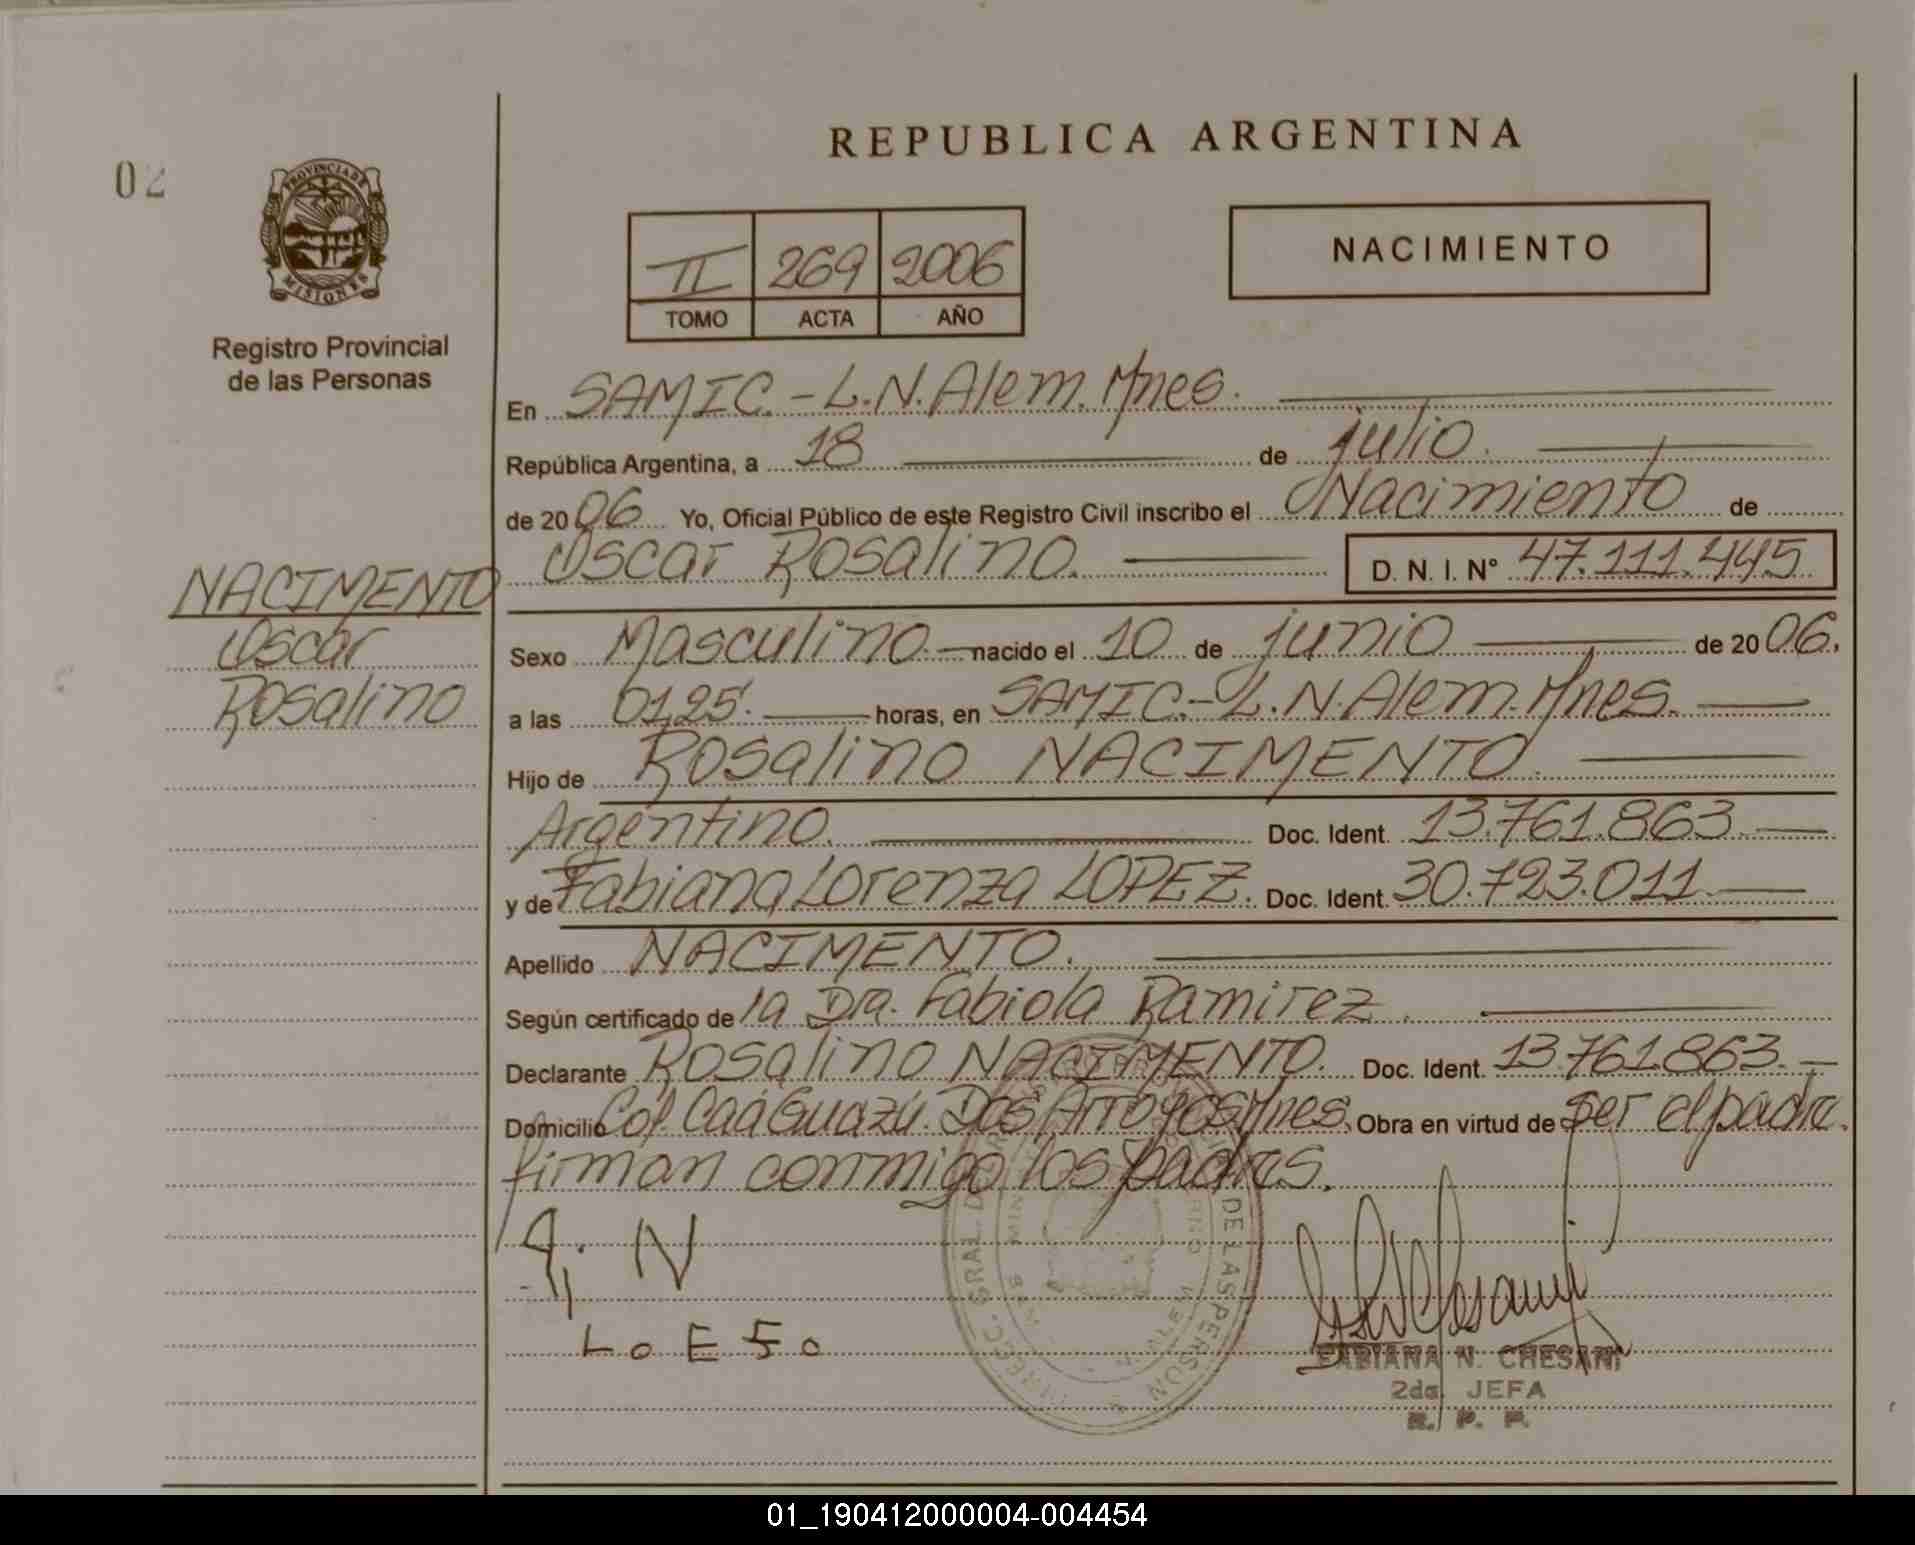 REPUBLICA ARGENTINA
02
PROVINCIA DE
MISIONES
Registro Provincial
de las Personas
II 269 2006
TOMO ACTA AÑO
NACIMIENTO
En SAMIC.-L.N.Alem.Mnes.
República Argentina, a 18 de julio.
de 2006 Yo, Oficial Público de este Registro Civil inscribo el Nacimiento de
Oscar Rosalino. D. N. I. N° 47.111.445
NACIMENTO
Oscar
Rosalino
Sexo Masculino. nacido el 10 de junio de 2006.
a las 01,25. horas, en SAMIC.-L.N.Alem.Mnes.
Hijo de Rosalino NACIMENTO.
Argentino. Doc. Ident. 13.761.863.
y de Fabiana Lorenza LOPEZ. Doc. Ident. 30.723.011.
Apellido NACIMENTO.
Según certificado de la Dra. Fabiola Ramirez.
Declarante Rosalino NACIMENTO. Doc. Ident. 13.761.863.
Domicilio Col. Caá Guazú. Dos Arroyos Mnes. Obra en virtud de ser el padre.
firman conmigo los padres.
N
LOE50
DE LAS PERSON
FABIANA N. CHESANI
2da. JEFA
R. P. P.
01_190412000004-004454